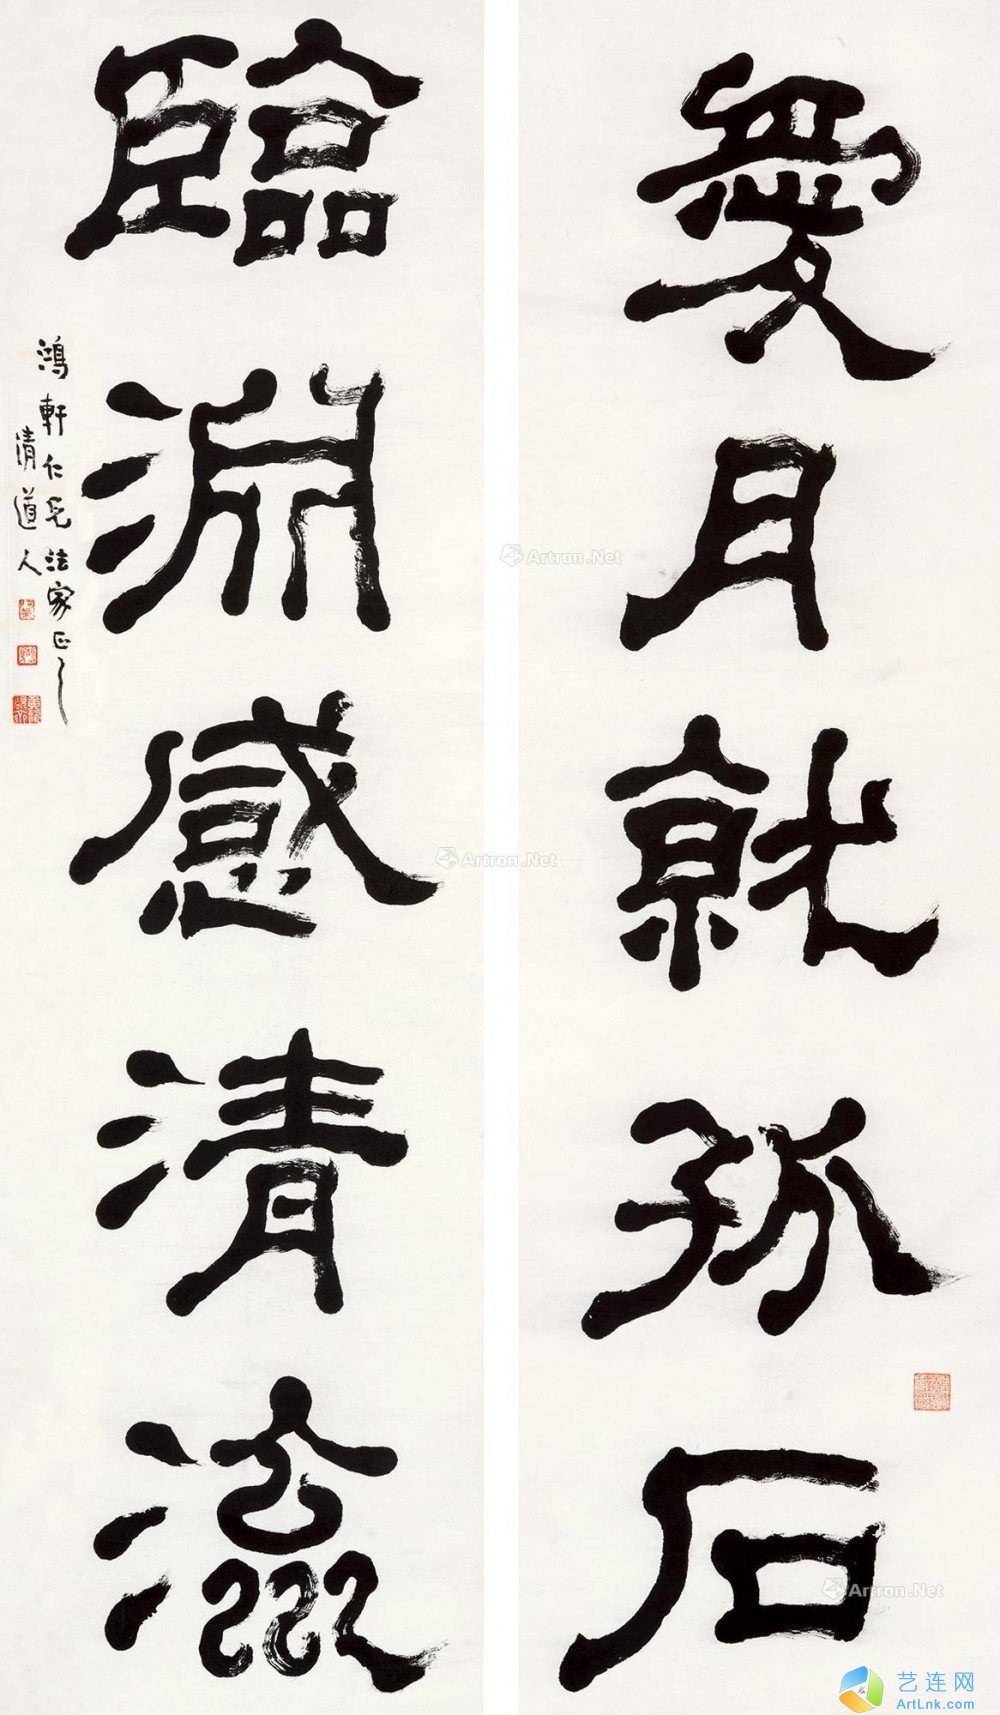 愛月就孤石
臨淵感清流
鴻軒仁兄法家正之
清道人
Artron.Net
Artron.Net
Artron.Net
艺连网
ArtLnk.com